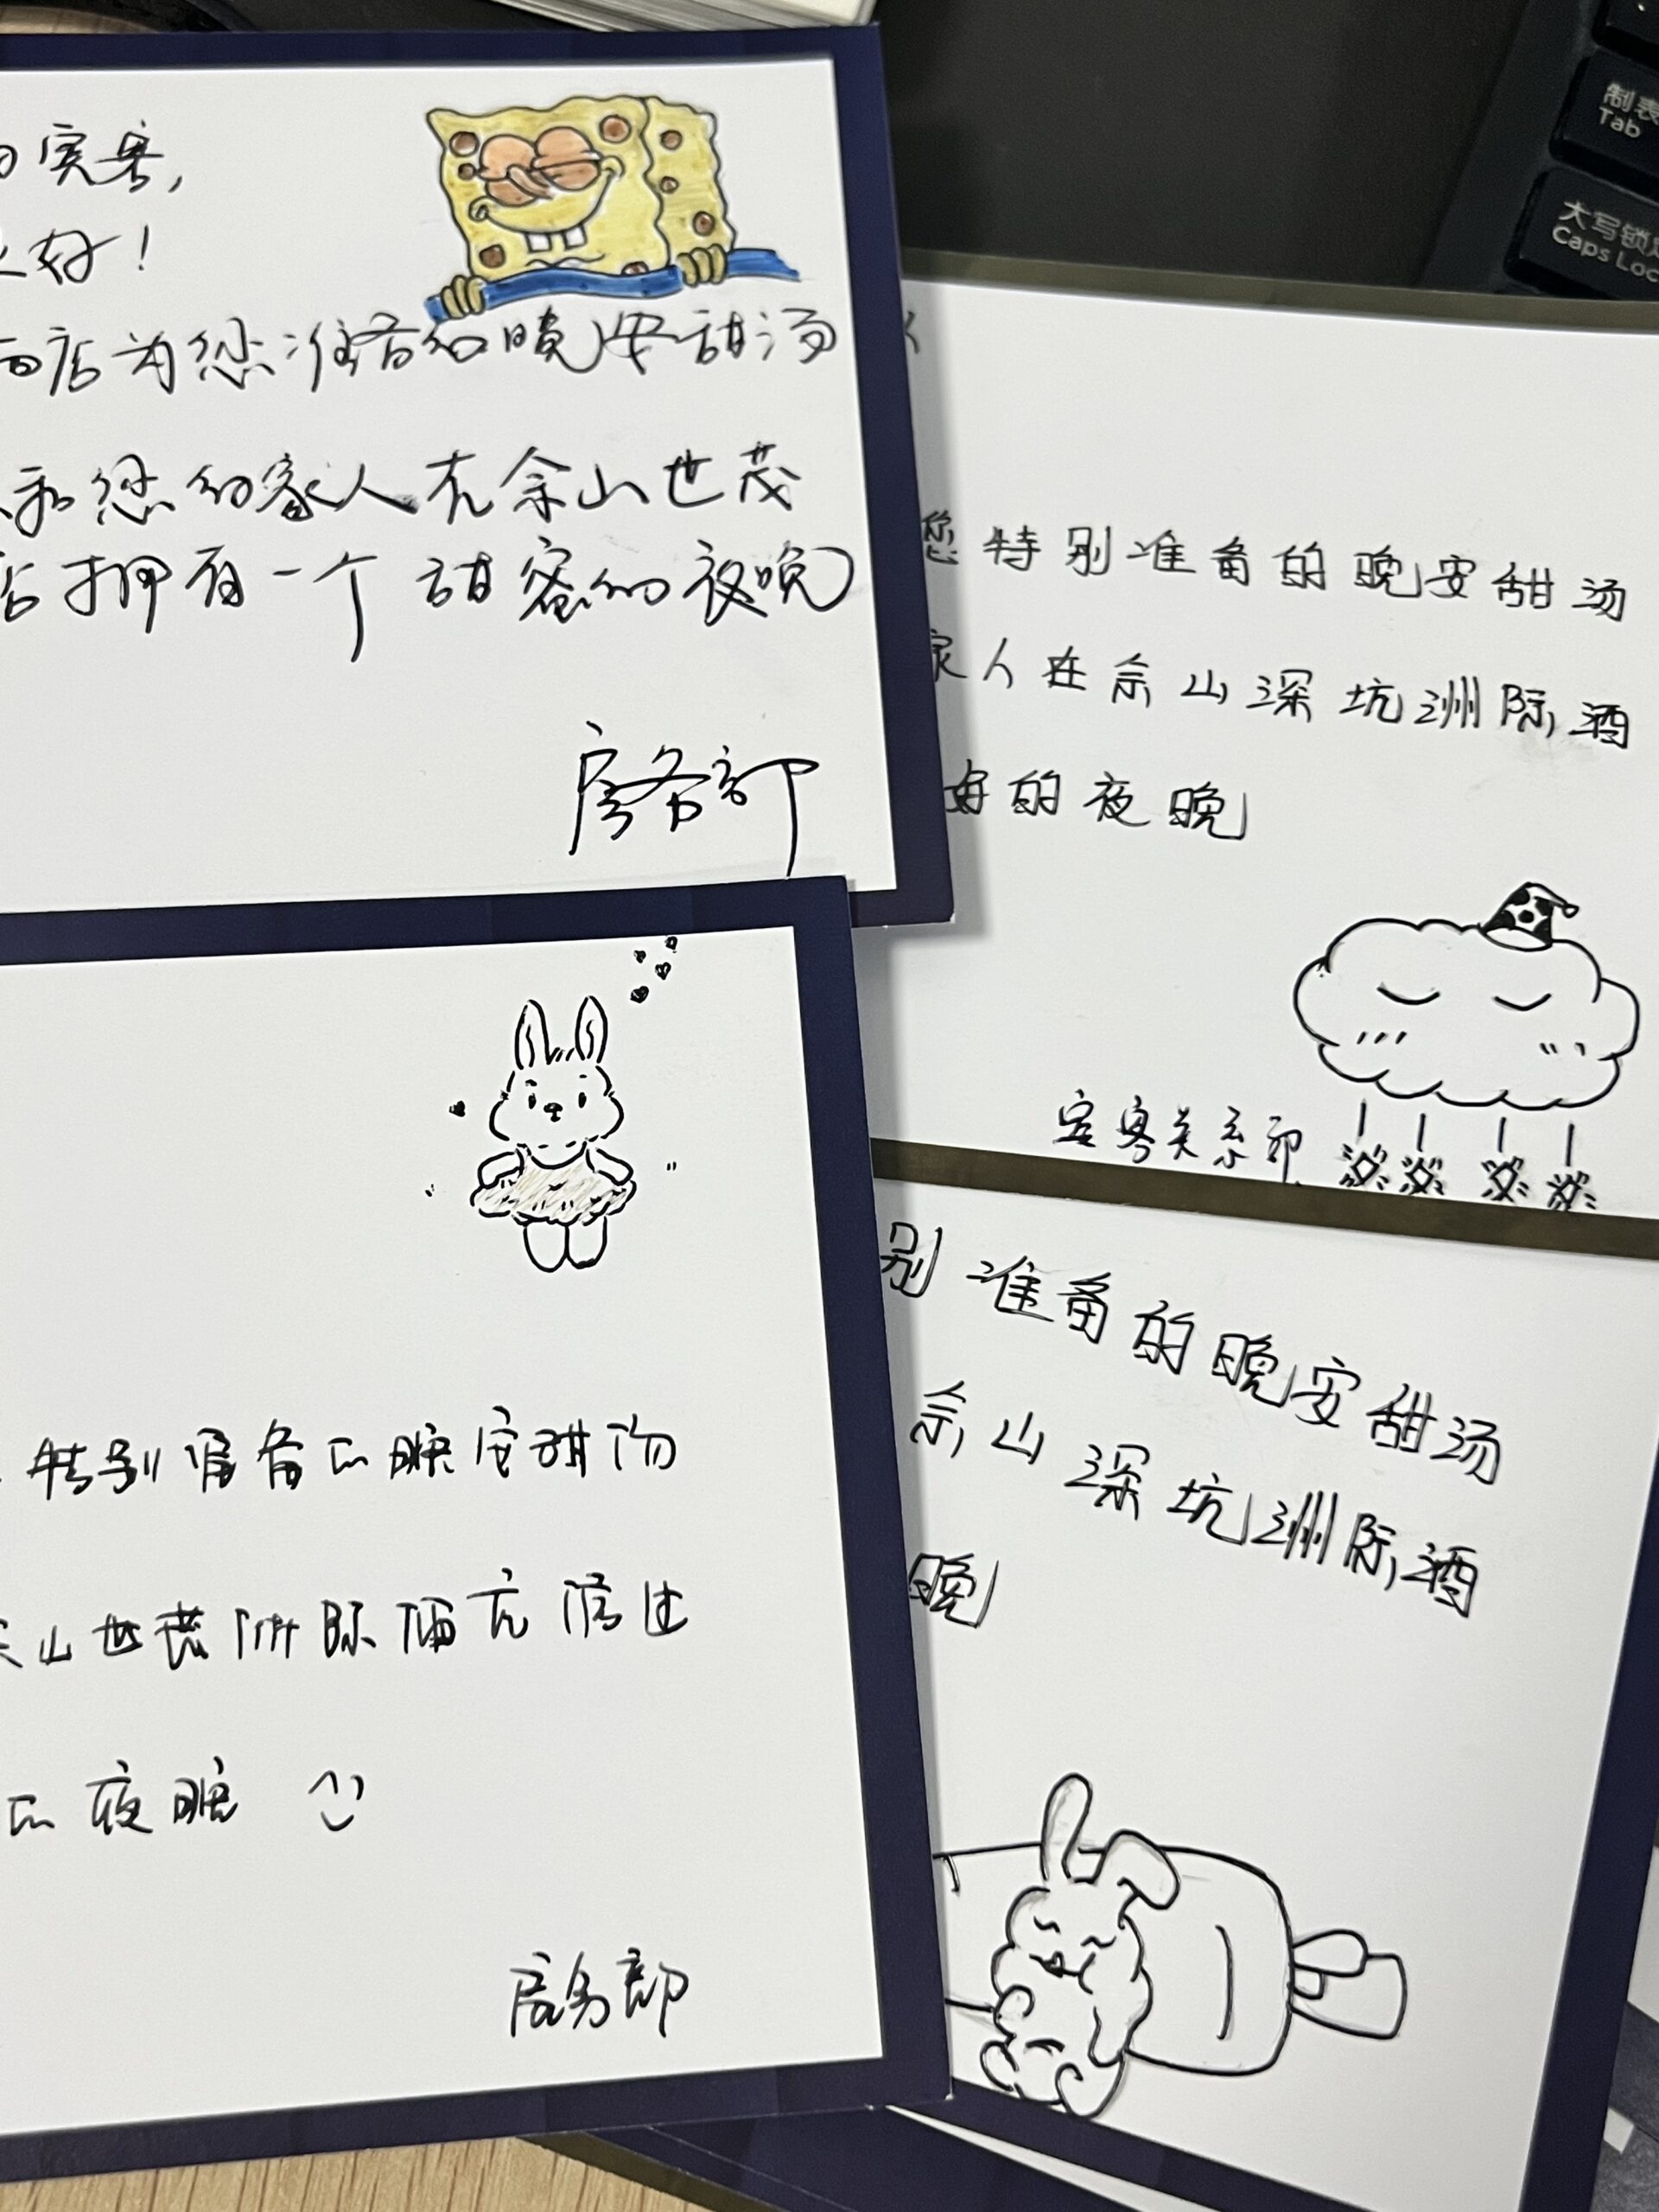 宾客,
好!
店为您准备的晚安甜汤
和您的家人在佘山世茂
店拥有一个甜蜜的夜晚
房务部
您特别准备的晚安甜汤
家人在佘山深坑洲际酒
好的夜晚
宾客关系部
特别准备的晚安甜汤
山世茂洲际酒店
的夜晚
房务部
别准备的晚安甜汤
佘山深坑洲际酒
晚
制表
Tab
大写锁定
Caps Loc